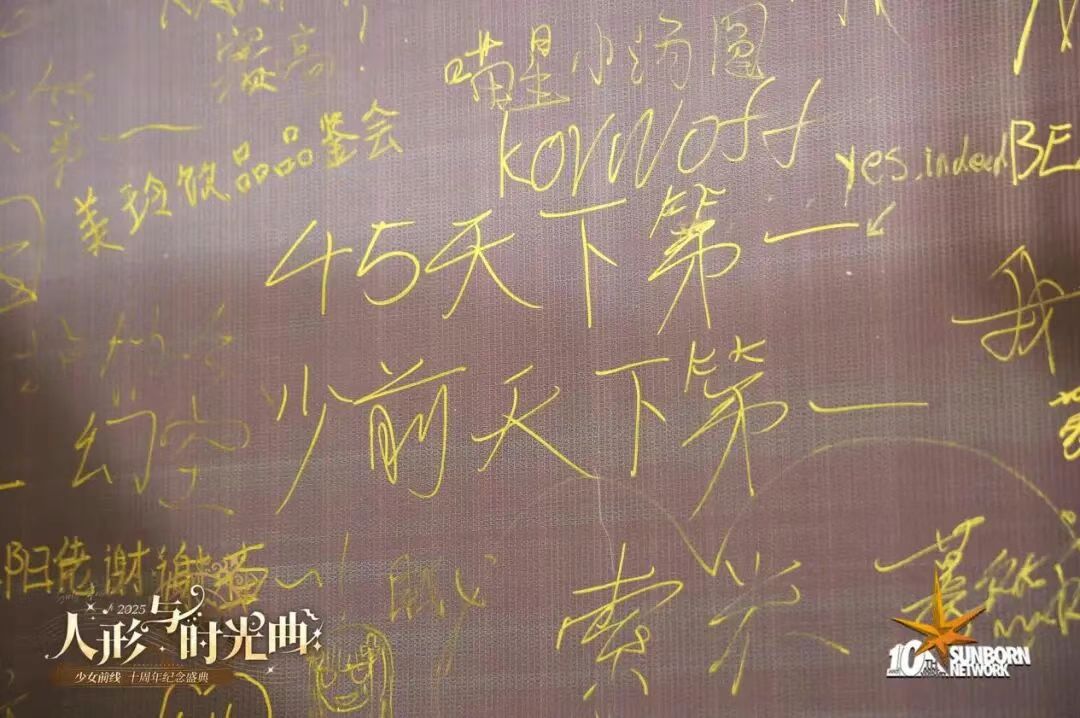 最高!
喵星小汤圆
第一
美玲饮品品鉴会
korwoff
yes,indeed
BE
45天下第一
我
少前天下第一
幻空
阳佬谢谢
索米
2025
人形与时光曲
少女前线 十周年纪念盛典
10TH
SUNBORN
NETWORK